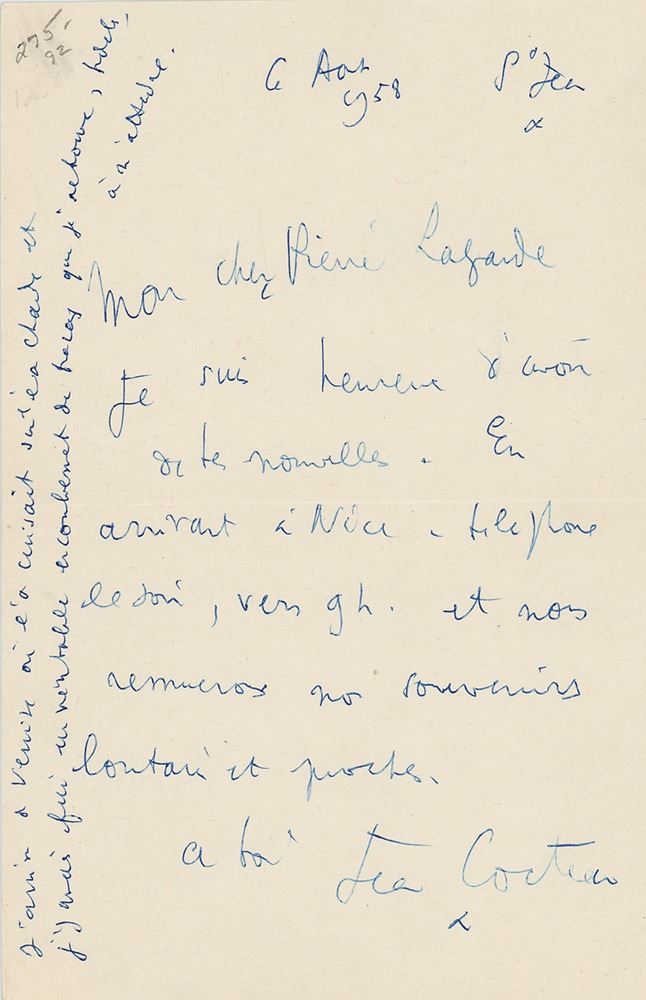 6 Aout St Jean
1958
Mon cher Pierre Lagarde
Je suis heureux d'avoir
de tes nouvelles. En
arrivant à Nice - telephone
le soir, vers 9h. et nous
remuerons nos souvenirs
lointains et proches.
a toi Jean Cocteau
J'arrive de Venise où l'on cuisait sur les et
j'y avais fui un véritable encombrement de tracas que je retrouve,
à m'attendre.